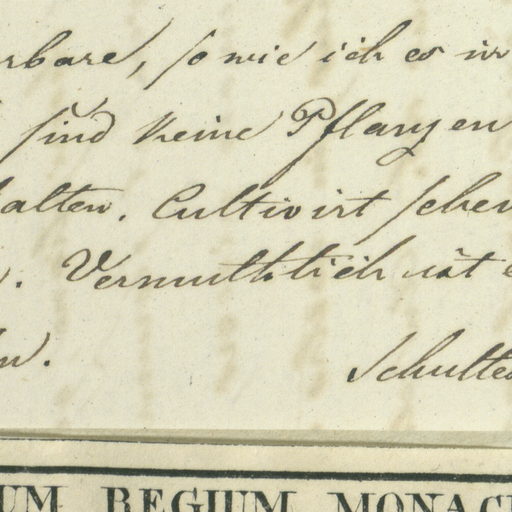 rbare, so wie ich es in
sind keine Pflanzen
alten. Cultivirt schen
. Vermuthlich ist e
n. Schultes
UM REGIUM MONAC